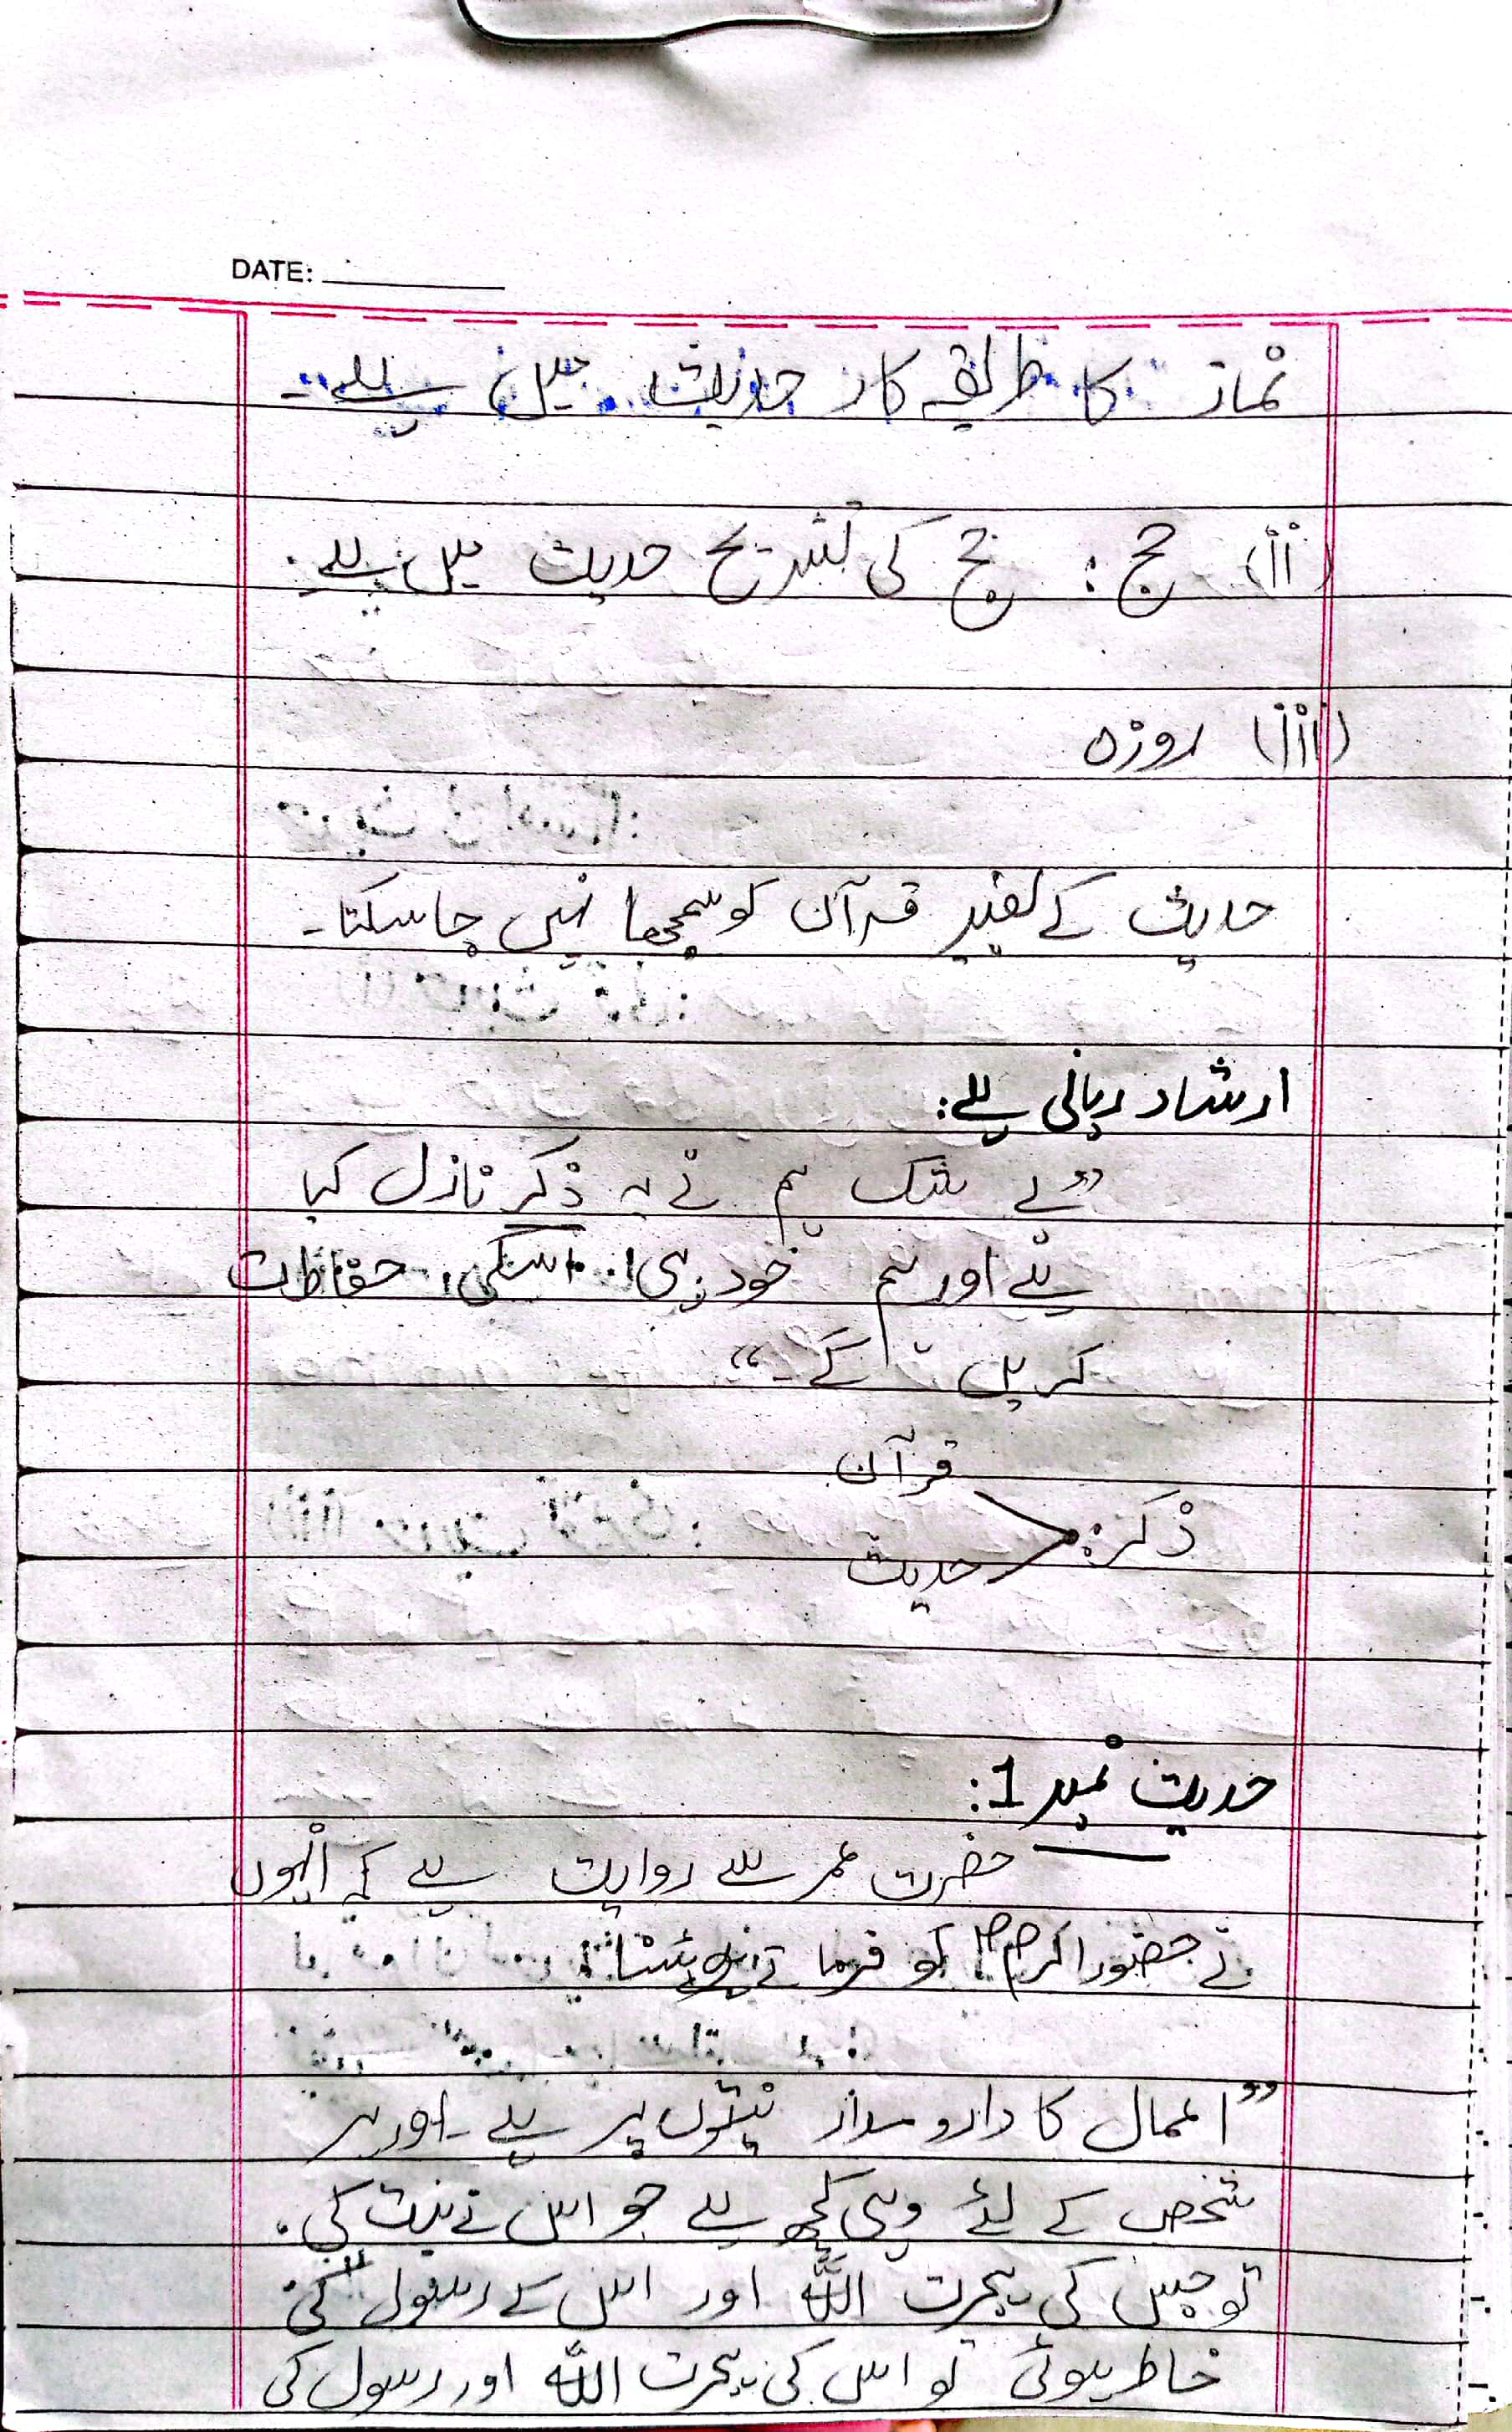 DATE:
نماز کا طریقہ کار حدیث میں ہے۔
(ii) حج: حج کی تشریح حدیث میں ہے۔
(iii) روزہ
حدیث کے بغیر قرآن کو سمجھا نہیں جا سکتا۔
ارشاد ربانی ہے:
”بے شک ہم نے یہ ذکر نازل کیا
ہے اور ہم خود ہی اسکی حفاظت
کریں گے۔“
قرآن
ذکر:
حدیث
حدیث نمبر 1:
حضرت عمر سے روایت ہے کہ انہوں
نے حضور اکرمؐ کو فرماتے ہوئے سنا:
”اعمال کا دارو مدار نیتوں پر ہے۔ اور ہر
شخص کے لئے وہی کچھ ہے جو اس نے نیت کی۔
تو جس کی ہجرت اللہ اور اس کے رسول کی
خاطر ہوئی تو اس کی ہجرت اللہ اور رسول کی